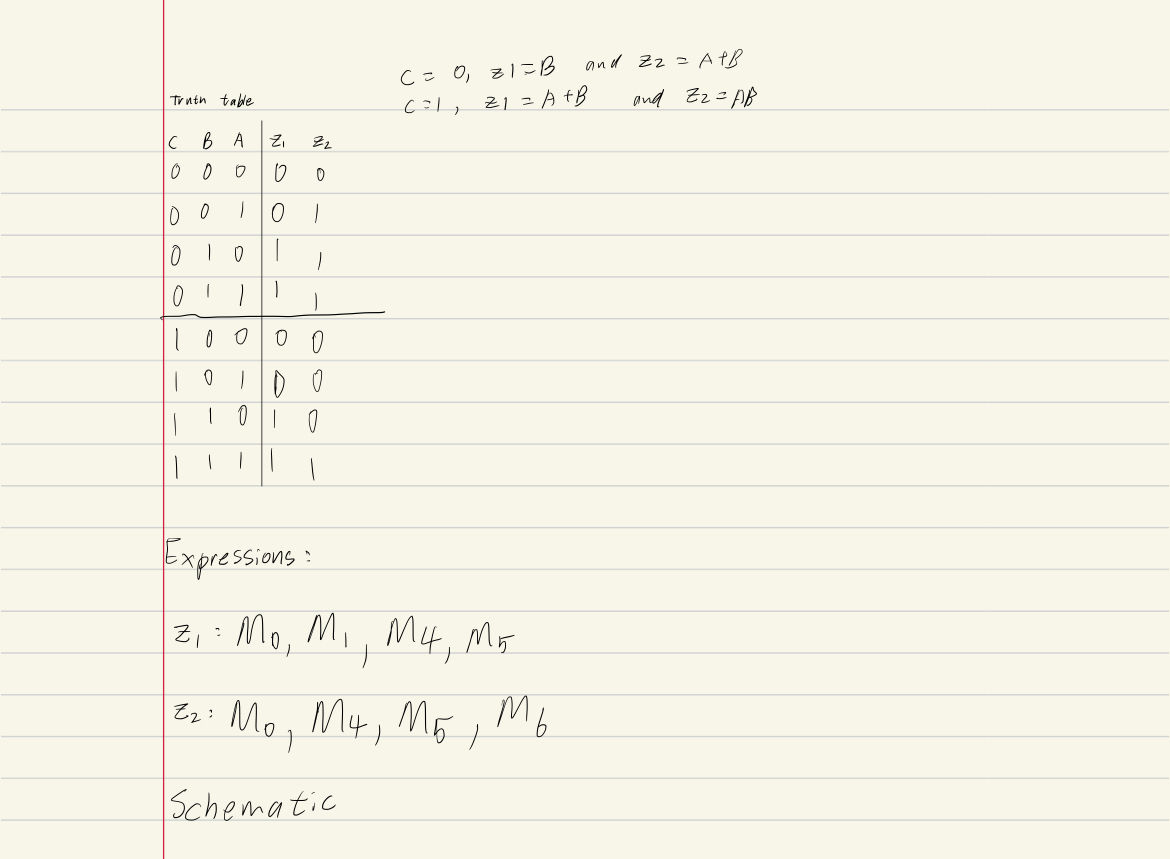 C = 0, z1=B and z2 = A+B
Truth table
C=1, z1 = A+B and Z2=AB
C B A Z1 Z2
0 0 0 0 0
0 0 1 0 1
0 1 0 1 1
0 1 1 1 1
1 0 0 0 0
1 0 1 0 0
1 1 0 1 0
1 1 1 1 1
Expressions:
Z1: M0, M1, M4, M5
Z2: M0, M4, M5, M6
Schematic